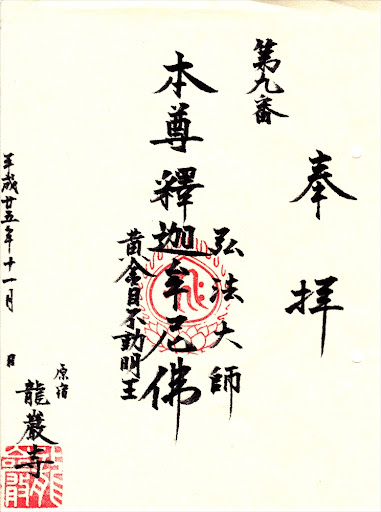 奉拝
第九番
弘法大師
本尊釋迦牟尼佛
黄金目不動明王
平成廿五年十一月 日
原宿
龍巖寺